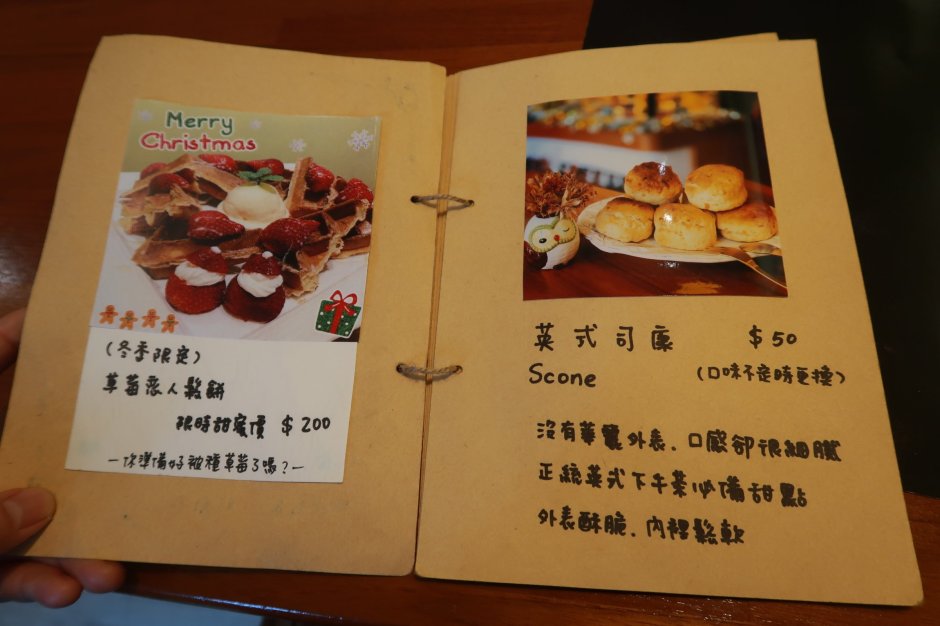 Merry
Christmas
(冬季限定)
草莓戀人鬆餅
限時甜蜜價 $200
—你準備好被種草莓了嗎?—
英式司康 $50
Scone (口味不定時更換)
沒有華麗外表.口感卻很細膩
正統英式下午茶必備甜點
外表酥脆.內裡鬆軟